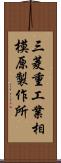 三菱重工業相
模原製作所